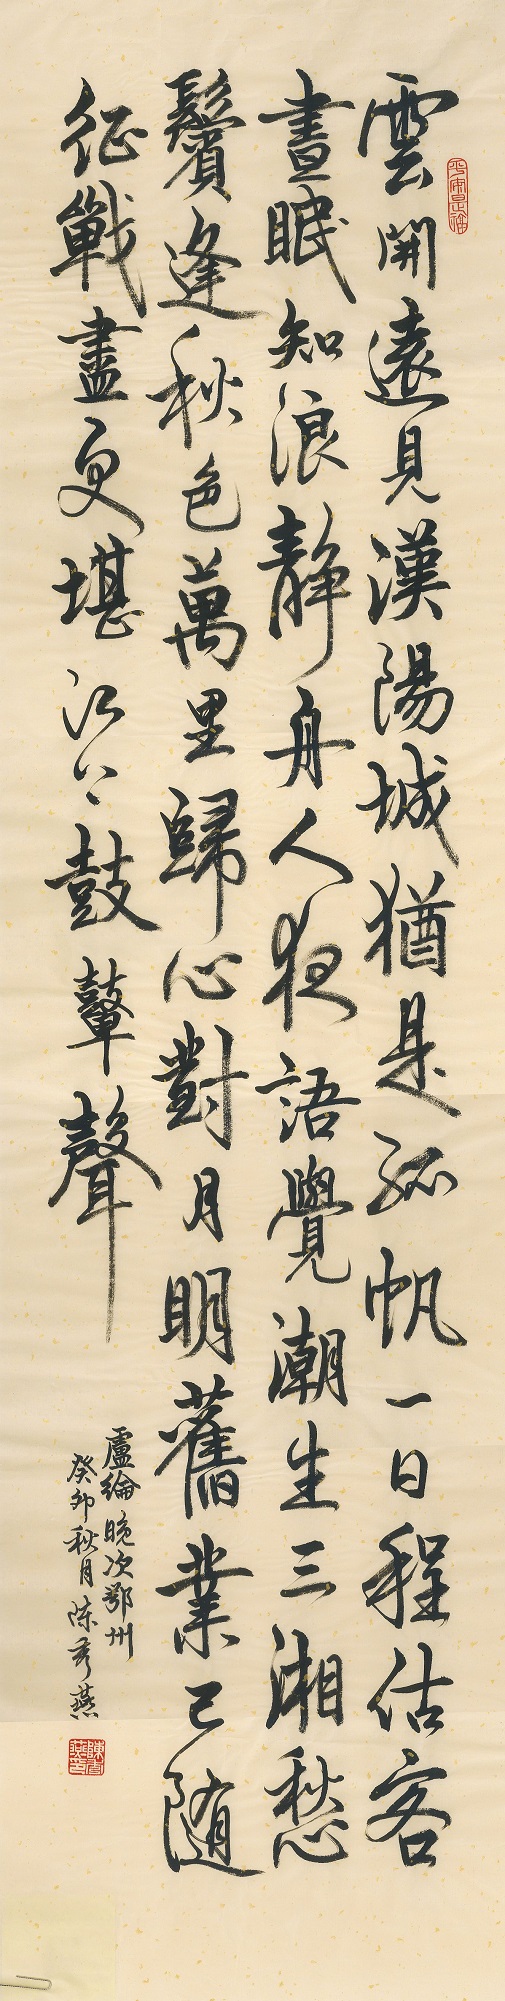 平安是福
雲開遠見漢陽城猶是孤帆一日程估客
晝眠知浪靜舟人夜語覺潮生三湘愁
鬢逢秋色萬里歸心對月明舊業已隨
征戰盡更堪江上鼓鼙聲
盧綸晚次鄂州
癸卯秋月陳秀燕